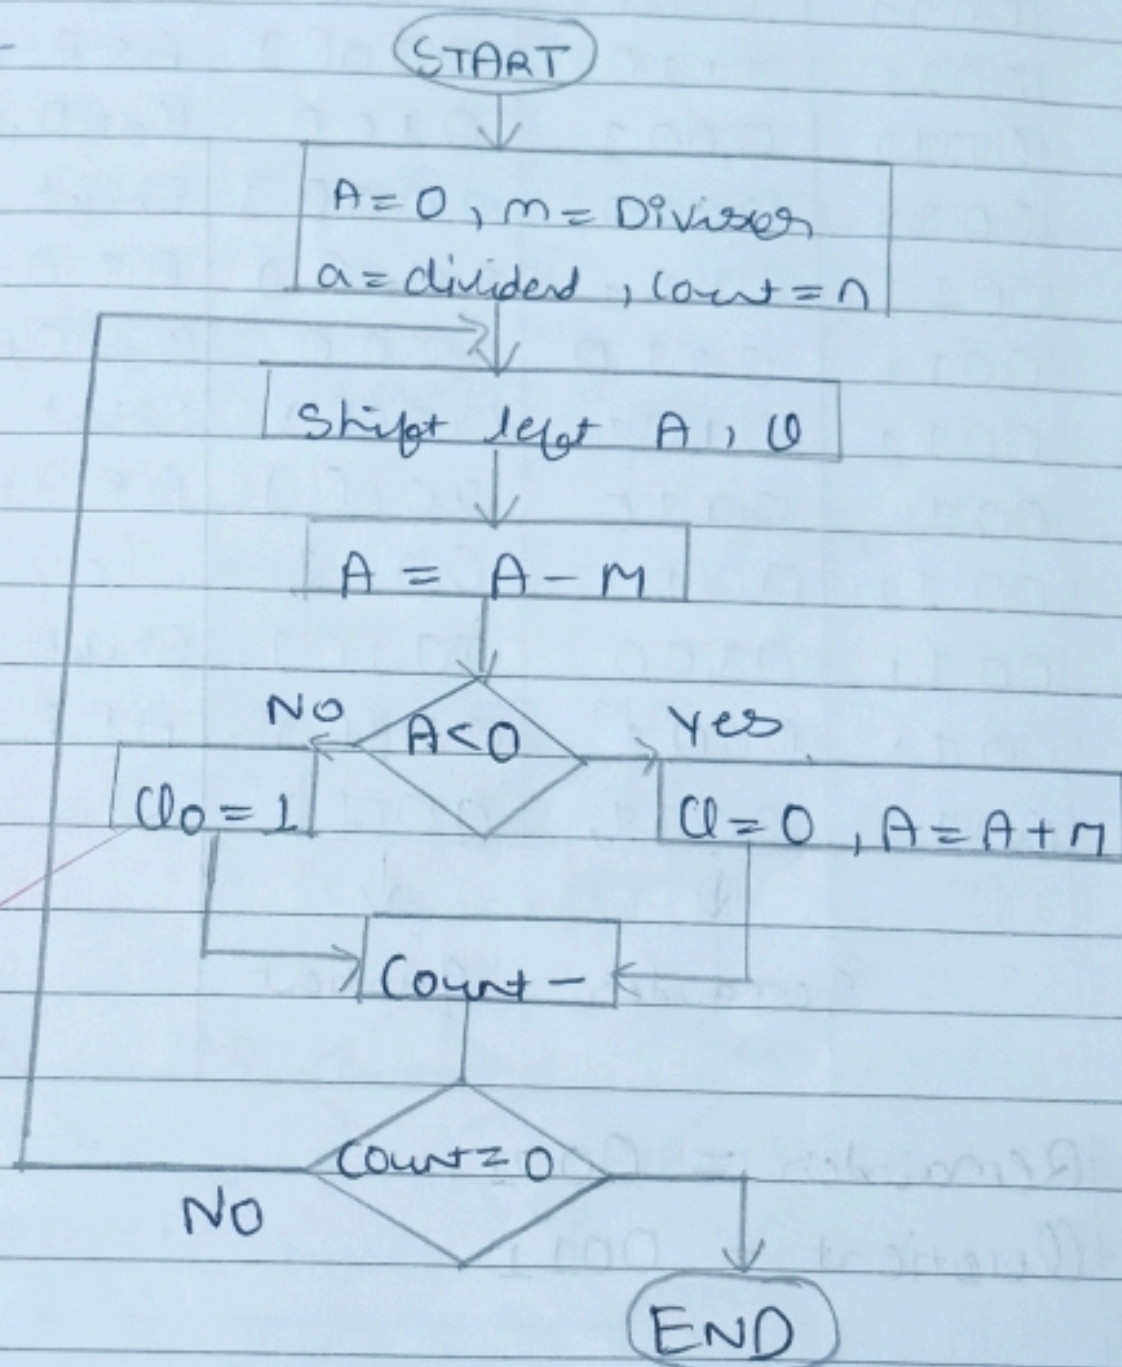 START
A = 0 , m = Divisor
a = dividend , Count = n
Shift left A , Q
A = A - M
A < 0
No
Yes
Q0 = 1
Q = 0 , A = A + M
Count -
Count = 0
No
END